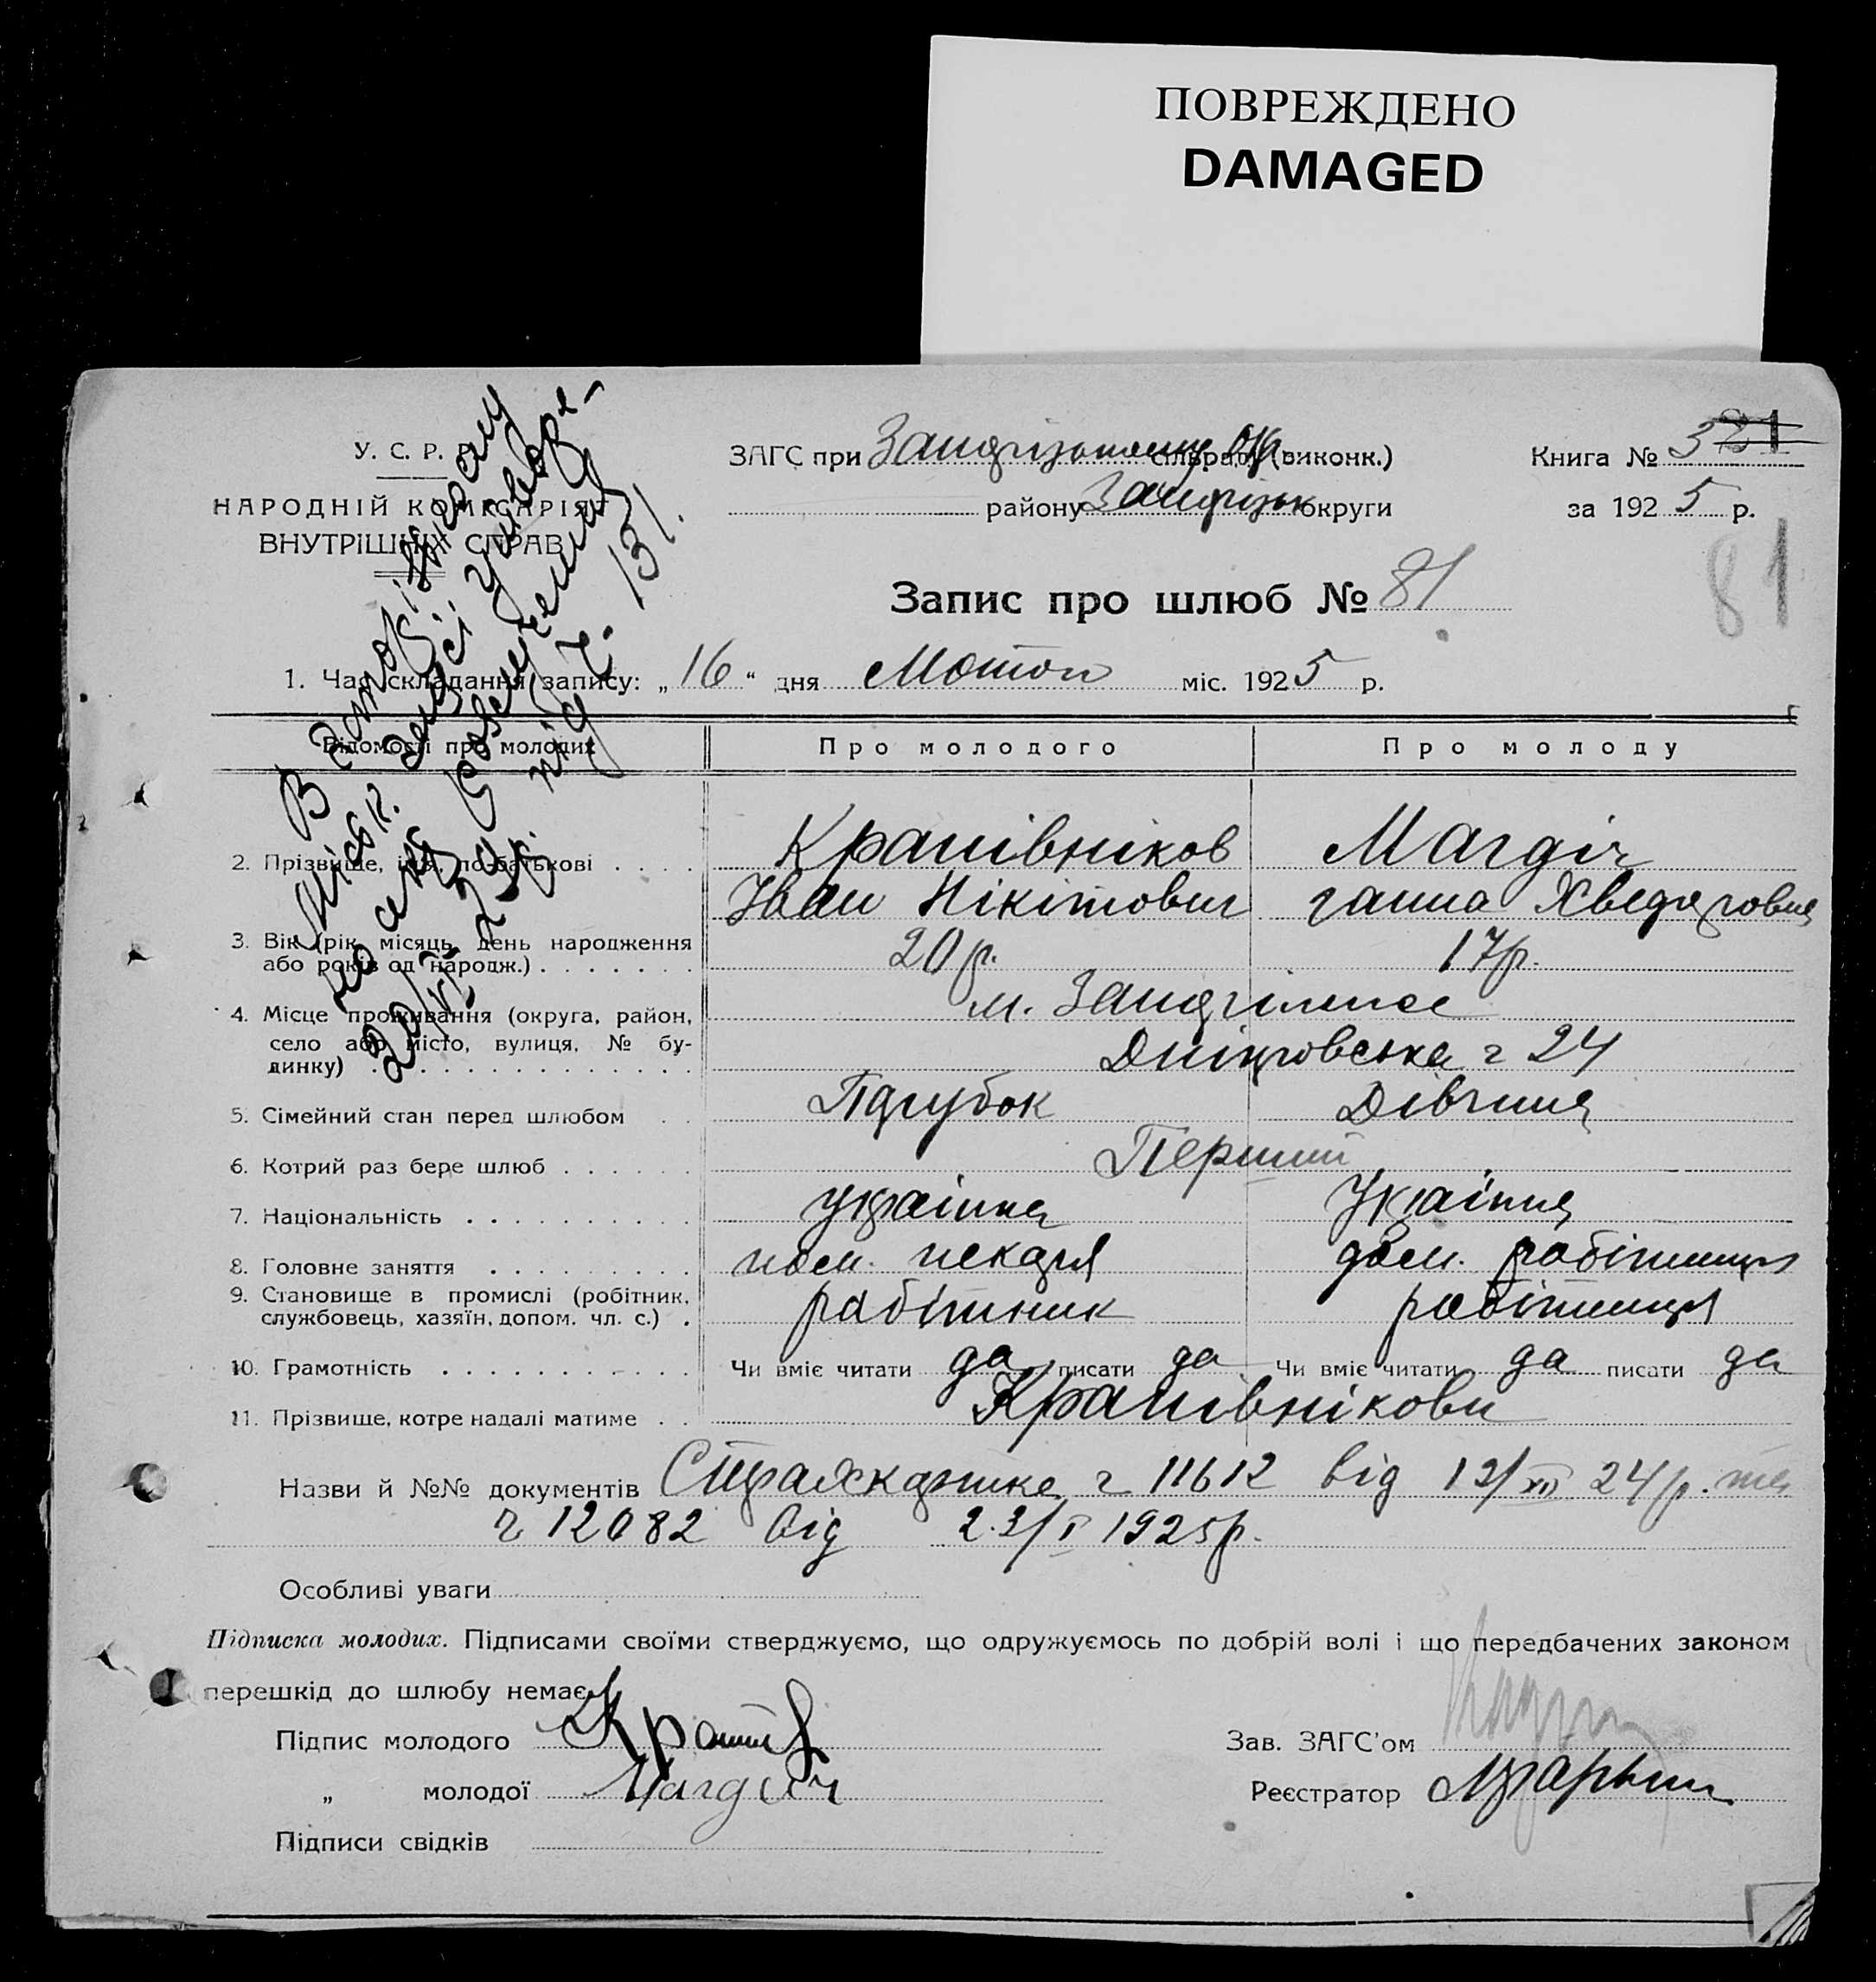 ПОВРЕЖДЕНО
DAMAGED
У. С. Р. Р.
ЗАГС при сільраді (виконк.)
Книга № 3 21
НАРОДНІЙ КОМІСАРІЯТ
району округи
за 192 5 р.
ВНУТРІШНІХ СПРАВ
81
Запис про шлюб № 81
1. Час складання запису: „ 16 “ дня міс. 192 5 р.
Відомості про молодих
Про молодого
Про молоду
2. Прізвище, ім'я, по-батькові
Крапівніков
Магдіч
Іван Нікітович
ганна Хведоровна
3. Вік (рік, місяць, день народження
або років од народж.)
20 р.
17 р.
4. Місце проживання (округа, район,
село або місто, вулиця, № бу-
динку)
м.
Дніпровська ч 24
5. Сімейний стан перед шлюбом
Парубок
Дівчина
6. Котрий раз бере шлюб
Перший
7. Національність
8. Головне заняття
пом. пекаря
дом. робітниця
9. Становище в промислі (робітник,
службовець, хазяїн, допом. чл. с.)
рабітник
робітниця
10. Грамотність
Чи вміє читати да писати да
Чи вміє читати да писати да
11. Прізвище, котре надалі матиме
Крапівнікови
Назви й №№ документів ч 11612 від 12/XII 24 р. та
ч 12082 від 2.3/I 1925 р.
Особливі уваги
Підписка молодих. Підписами своїми стверджуємо, що одружуємось по добрій волі і що передбачених законом
перешкід до шлюбу немає.
Підпис молодого
Зав. ЗАГС'ом
„ молодої Магдич
Реєстратор
Підписи свідків